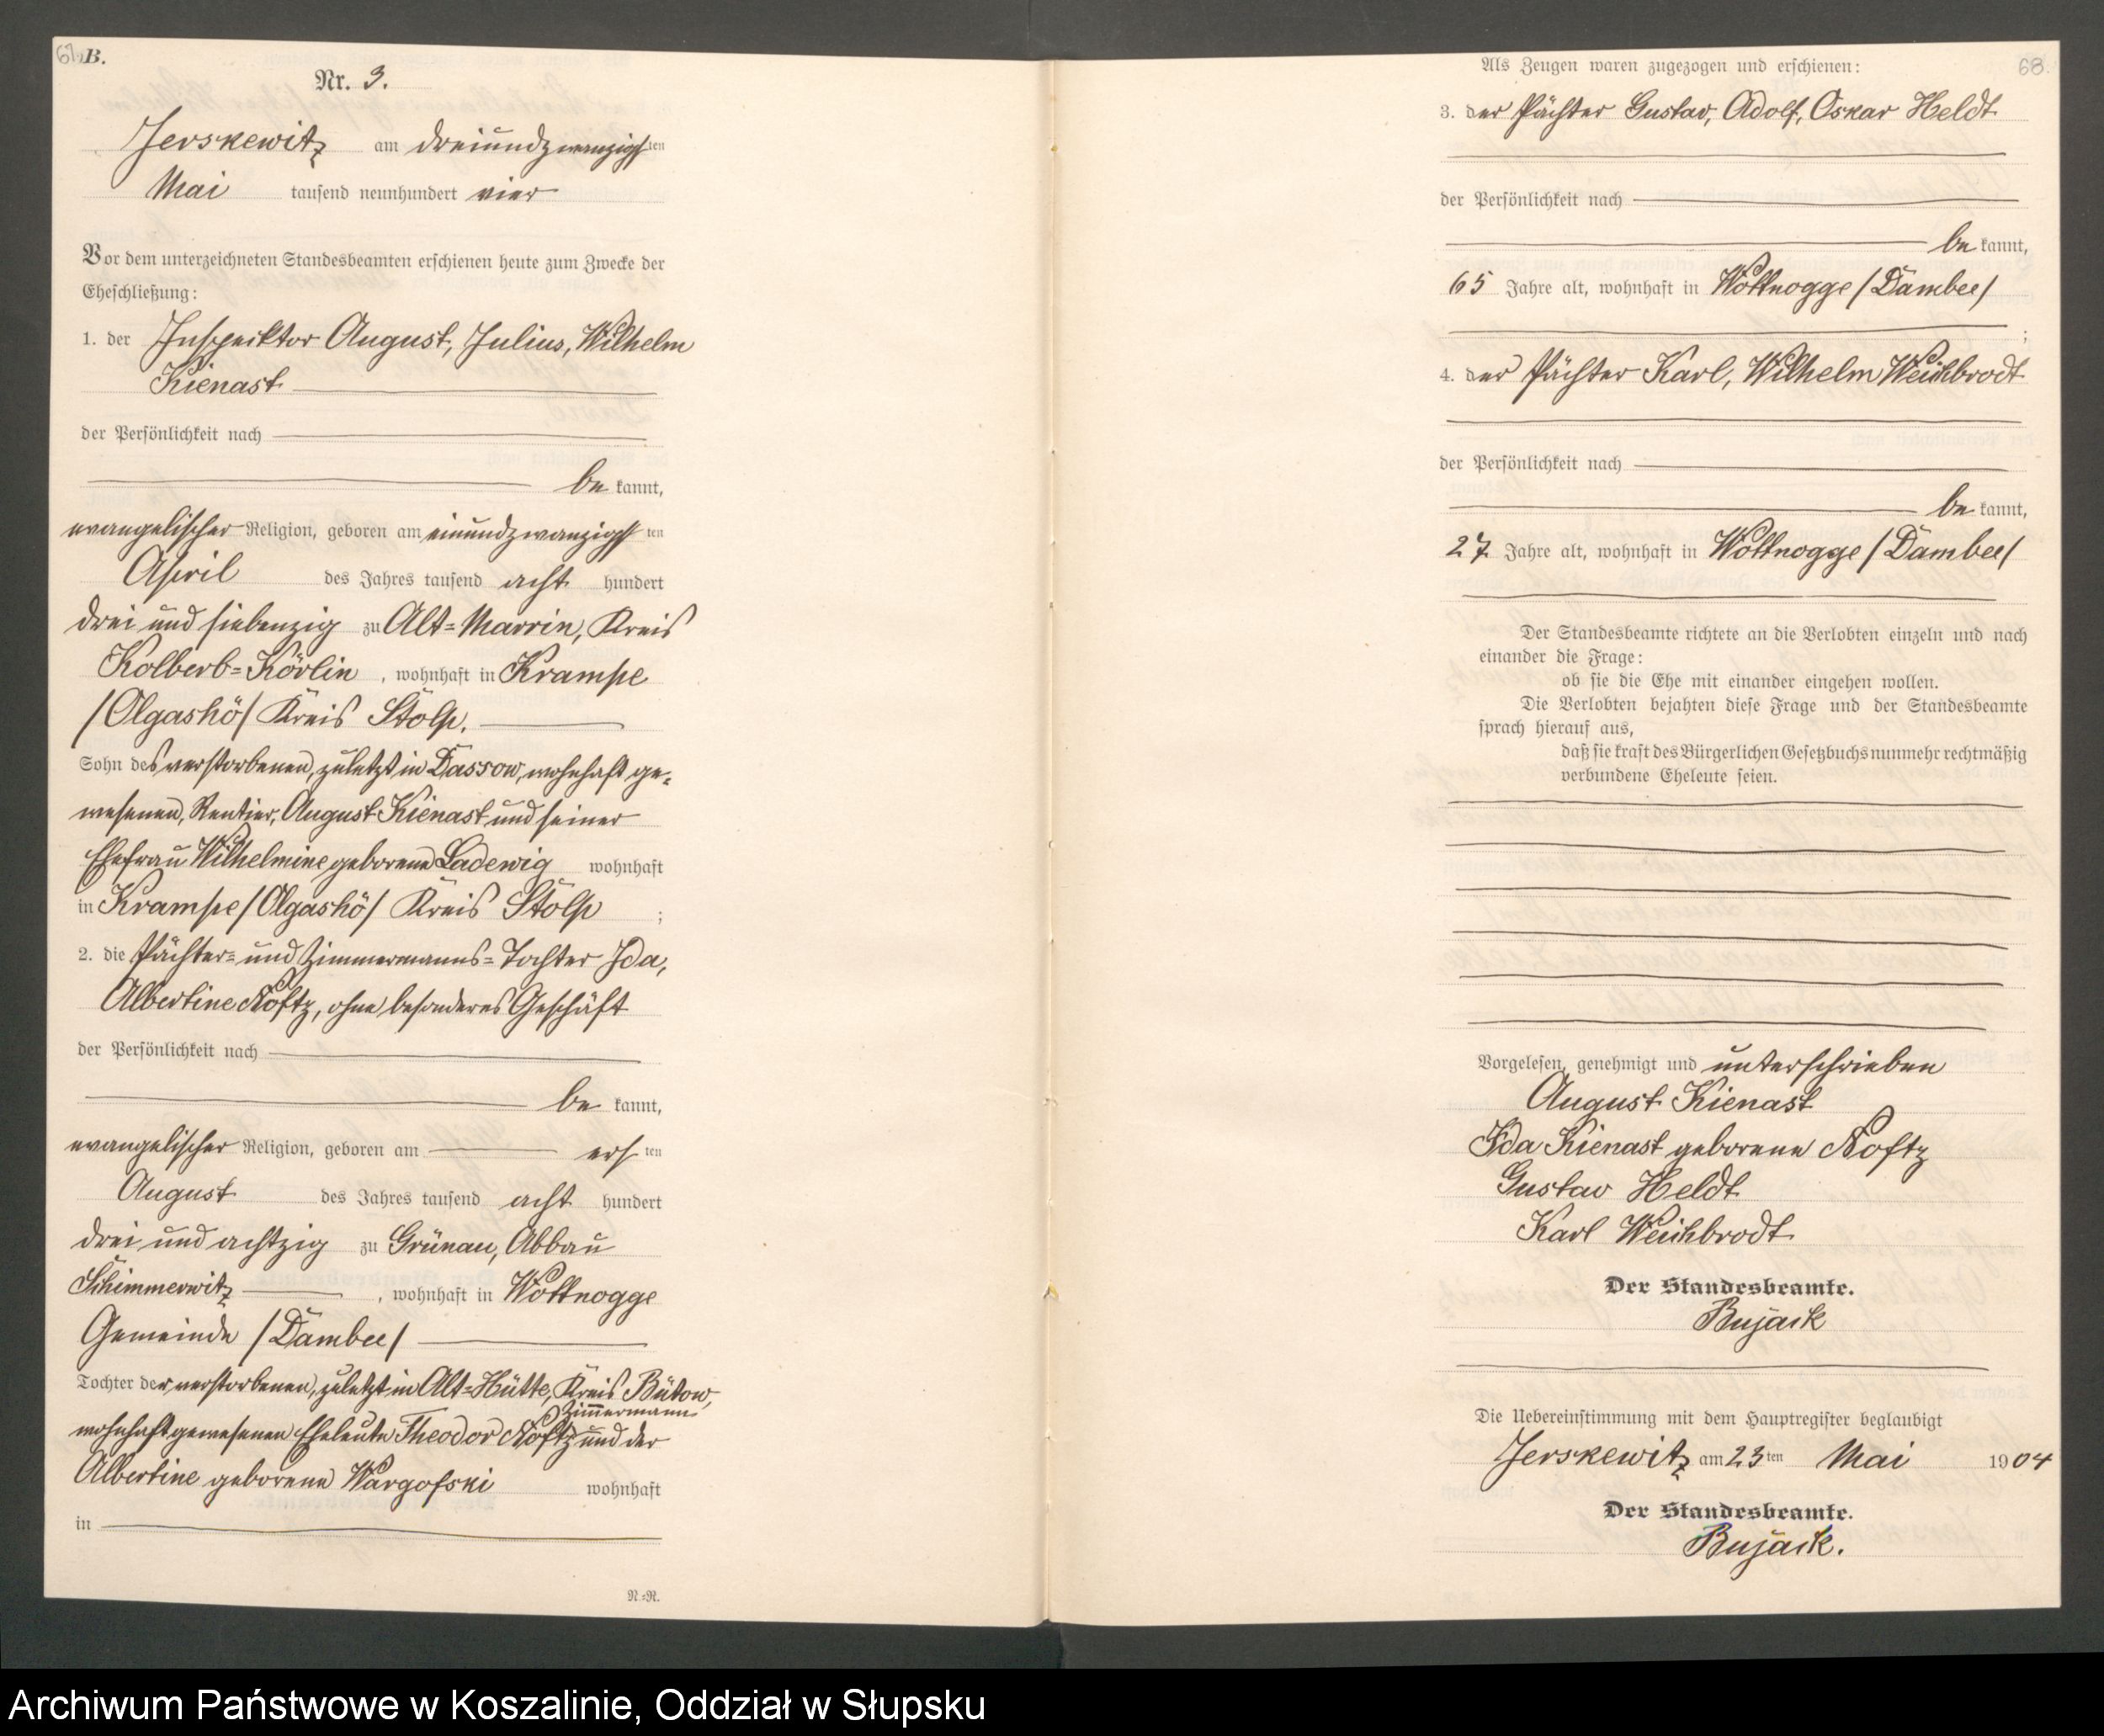 67.
B.
Nr. 3.
Jerskewitz am dreiundzwanzigsten
Mai tausend neunhundert vier
Vor dem unterzeichneten Standesbeamten erschienen heute zum Zwecke der
Eheschließung:
1. der Inspecktor August, Julius, Wilhelm
Kienast
der Persönlichkeit nach
be kannt,
evangelischer Religion, geboren am einundzwanzigsten
April des Jahres tausend acht hundert
drei und siebenzig zu Alt=Marrin, Kreis
Kolberb=Körlin, wohnhaft in Krampe
/Olgashö/ Kreis Stolp.
Sohn des verstorbenen, zuletzt in Dassow, wohnhaft ge=
wesenen, Rentier, August Kienast und seiner
Ehefrau Wilhelmine geborene Ladewig wohnhaft
in Krampe /Olgashö/ Kreis Stolp ;
2. die Pächter= und Zimmermanns=Tochter Ida,
Albertine Noftz, ohne besonderes Geschäft
der Persönlichkeit nach
be kannt,
evangelischer Religion, geboren am ersten
August des Jahres tausend acht hundert
drei und achtzig zu Grünau, Abbau
Schimmerwitz, wohnhaft in Wottnogge
Gemeinde /Dambee/
Tochter der verstorbenen, zuletzt in Alt=Hütte, Kreis Bütow,
Zimmermann
wohnhaft gewesenen Eheleute Theodor Noftz und der
Albertine geborene Wargofski wohnhaft
in
N=N.
68.
Als Zeugen waren zugezogen und erschienen:
3. der Pächter Gustav, Adolf, Oskar Heldt
der Persönlichkeit nach
be kannt,
65 Jahre alt, wohnhaft in Wottnogge /Dambee/
;
4. der Pächter Karl, Wilhelm Weichbrodt
der Persönlichkeit nach
be kannt,
27 Jahre alt, wohnhaft in Wottnogge /Dambee/
Der Standesbeamte richtete an die Verlobten einzeln und nach
einander die Frage:
ob sie die Ehe mit einander eingehen wollen.
Die Verlobten bejahten diese Frage und der Standesbeamte
sprach hierauf aus,
daß sie kraft des Bürgerlichen Gesetzbuchs nunmehr rechtmäßig
verbundene Eheleute seien.
Vorgelesen, genehmigt und unterschrieben
August Kienast
Ida Kienast geborene Noftz
Gustav Heldt
Karl Weichbrodt
Der Standesbeamte.
Bujack
Die Uebereinstimmung mit dem Hauptregister beglaubigt
Jerskewitz am 23ten Mai 1904
Der Standesbeamte.
Bujack.
Archiwum Państwowe w Koszalinie, Oddział w Słupsku